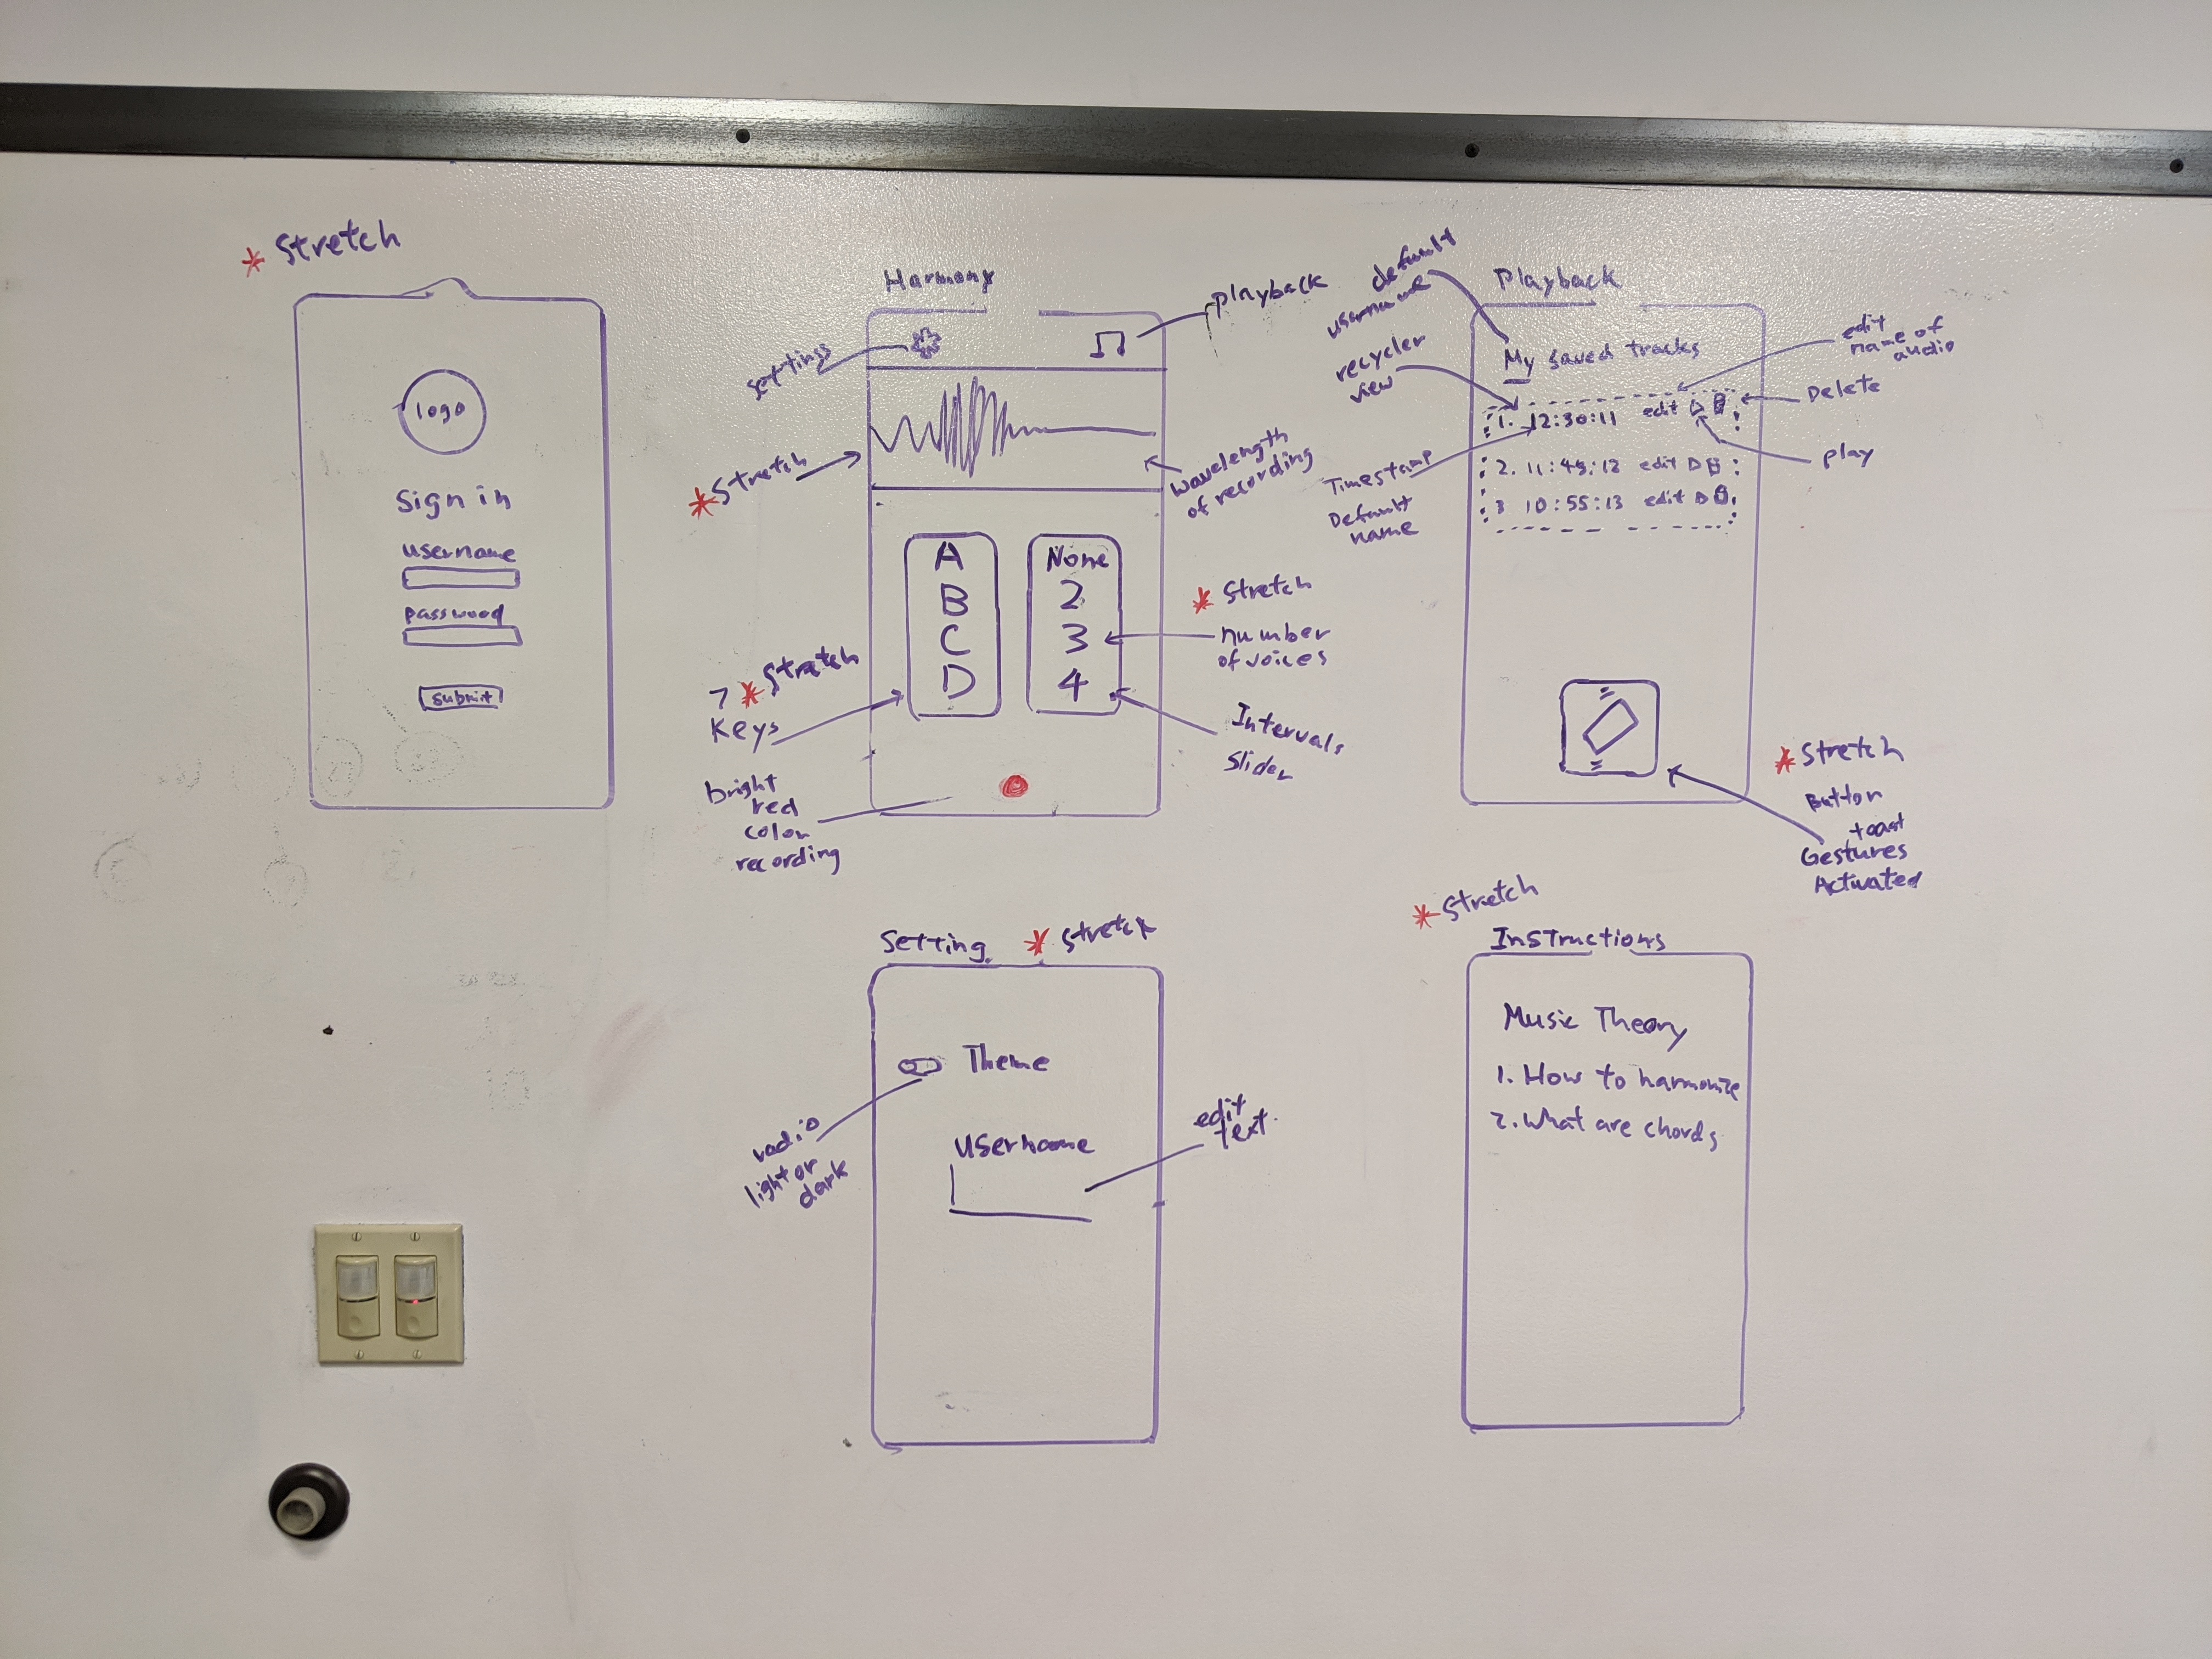 * Stretch
logo
Sign in
username
password
submit
Harmony
settings
playback
* Stretch
wavelength
of recording
A
B
C
D
None
2
3
4
* Stretch
number
of voices
7 * Stretch
Keys
Intervals
Slider
bright
red
color
recording
Playback
default
username
recycler
view
My saved tracks
edit
name of
audio
Delete
1. 12:30:11 edit
play
2. 11:45:12 edit
3 10:55:13 edit
Timestamp
Default
name
* Stretch
Button
toast
Gestures
Activated
Setting * Stretch
Theme
radio
light or
dark
username
edit
text.
* Stretch
Instructions
Music Theory
1. How to harmonize
2. What are chords